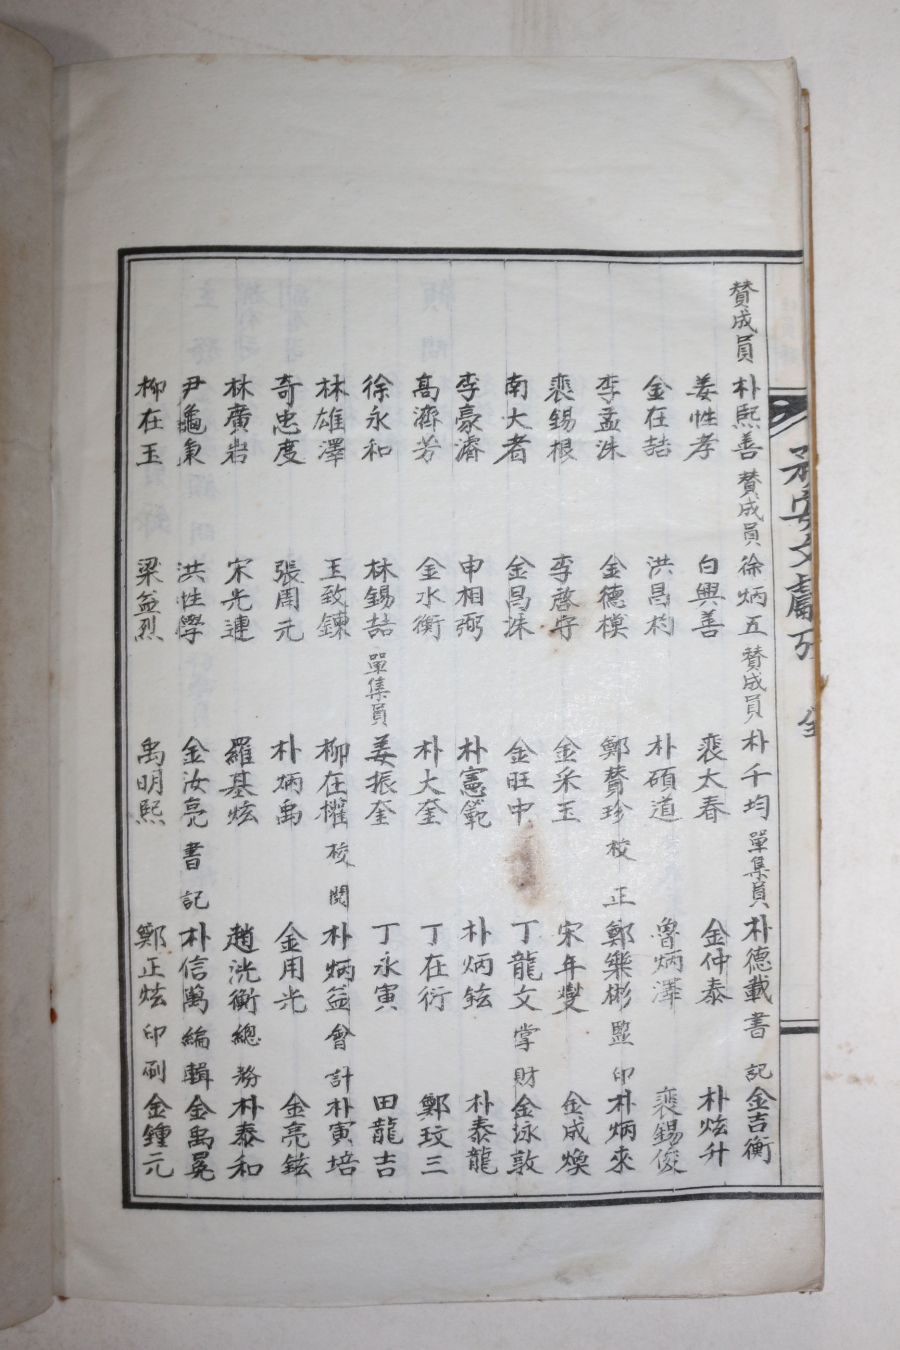 賛成員 朴熙善 賛成員 徐炳五 賛成員 朴千均 單集員 朴德載 書記 金吉衡
姜性孝 白興善 裵太春 金仲泰 朴炫升
金在喆 洪昌杓 朴碩道 魯炳澤 裵錫俊
李孟洙 金德模 鄭賛珍 校正 鄭樂彬 監印 朴炳來
裵錫根 李啓守 金采玉 宋年燮 金成煥
南大者 金昌洙 金旺中 丁龍文 掌財 金泳敦
李豪濬 申相弼 朴憲範 朴炳鉉 朴泰龍
高濟芳 金水衡 朴大奎 丁在衍 鄭玟三
徐永和 林錫喆 單集員 姜振奎 丁永寅 田龍吉
林雄澤 王致鍊 柳在櫂 校閱 朴炳益 會計 朴寅培
奇忠度 張周元 朴炳禹 金用光 金亮鉉
林廣岩 宋光連 羅基炫 趙洸衡 總務 朴泰和
尹龜 洪性學 金汝亮 書記 朴信萬 編輯 金禹冕
柳在玉 梁益烈 禹明熙 鄭正炫 印刷 金鍾元